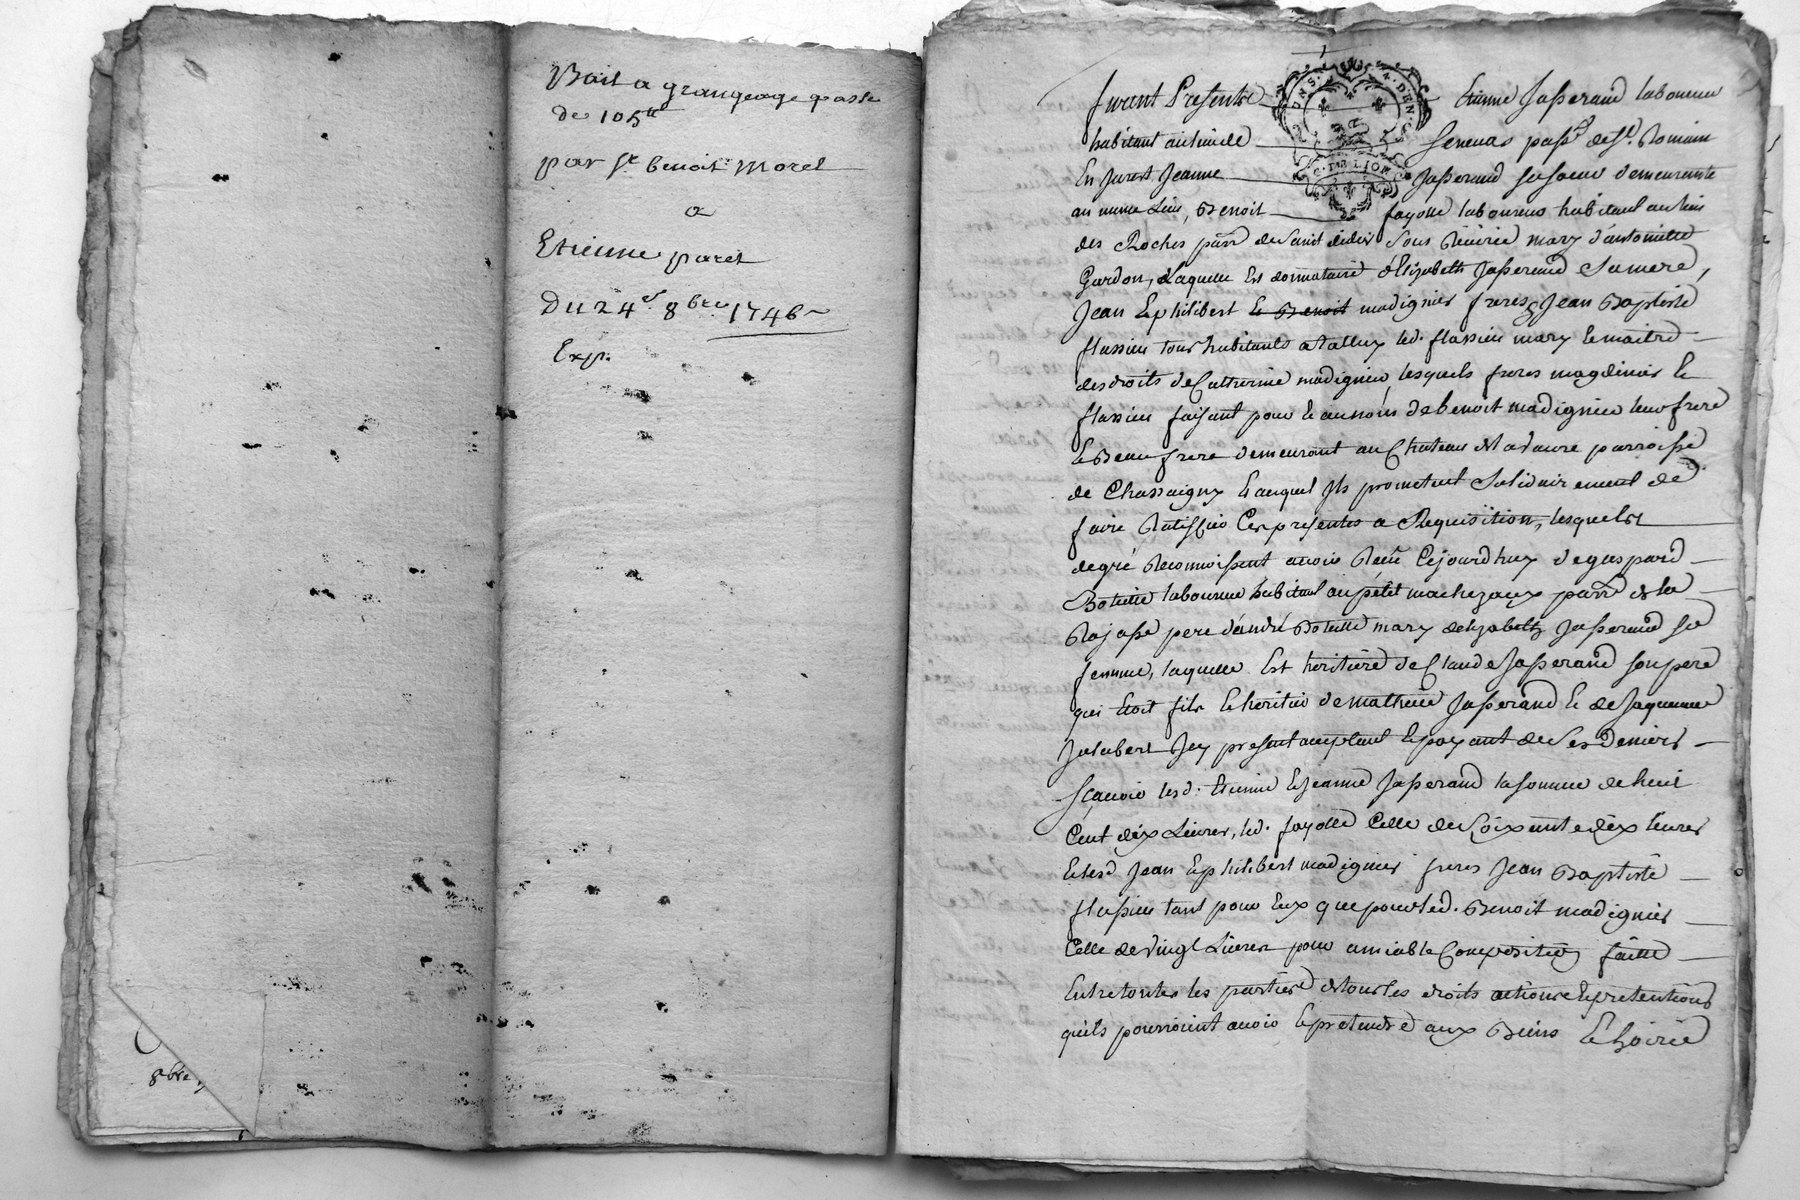 Bail a grangeage passe
de 105 tt
par sr. benoit Morel
a
Etienne paret
Du 24e. 8bre. 1746
Exp.
8bre
furent Presents Etienne Jasserand laboureur
habitant au lieu de Senevas passe de st. Romain
En Jarest Jeanne Jasserand sa soeur demeurante
au meme Lieu, Benoit fayolle laboureur habitant au lieu
des Roches parr de saint didier sous Riverie mary d'antoinette
Gardon, Laquelle Est donnataire d'Elizabeth Jasserand Sa mere,
Jean Et philibert et Benoit madignier freres & Jean Baptiste
flassieu tous habitants a led. flassieu mary Et maitre
des droits de Catherine madignier lesquels freres magdinier Et
flassieu faisant pour Et au nom de benoit madignier leur frere
Et Beaufrere demeurant au Chateau parroisse
de Chassaigny Et auquel Ils promettent Solidairement de
faire Ratiffier Ces presentes a Requisition, lesquels
de gré Reconnoissent avoir Reçu Cejourdhuy de gaspard
laboureur habitant au petit parr de la
Rajasse pere d'andré mary d'elizabeth Jasserand sa
femme, laquelle Est heritiere de Claude Jasserand son pere
qui Etoit fils Et heritier de mathieu Jasserand Et de Jaqueme
Jalabert Icy present acceptant Et payant de Ses Deniers
sçavoir lesd. Etienne Et Jeanne Jasserand la somme de huit
Cent dix Livres, led. fayolle Celle de soixante dix livres
Et lesd Jean Et philibert madignier freres Jean Baptiste
flassieu tant pour Eux que pour led. Benoit madignier
Celle de vingt Livres pour amiable Composition faitte
Entre toutes les parties de tous les droits actions Et pretentions
qu'ils pourroient avoir Et pretendre aux Biens Et hoirie